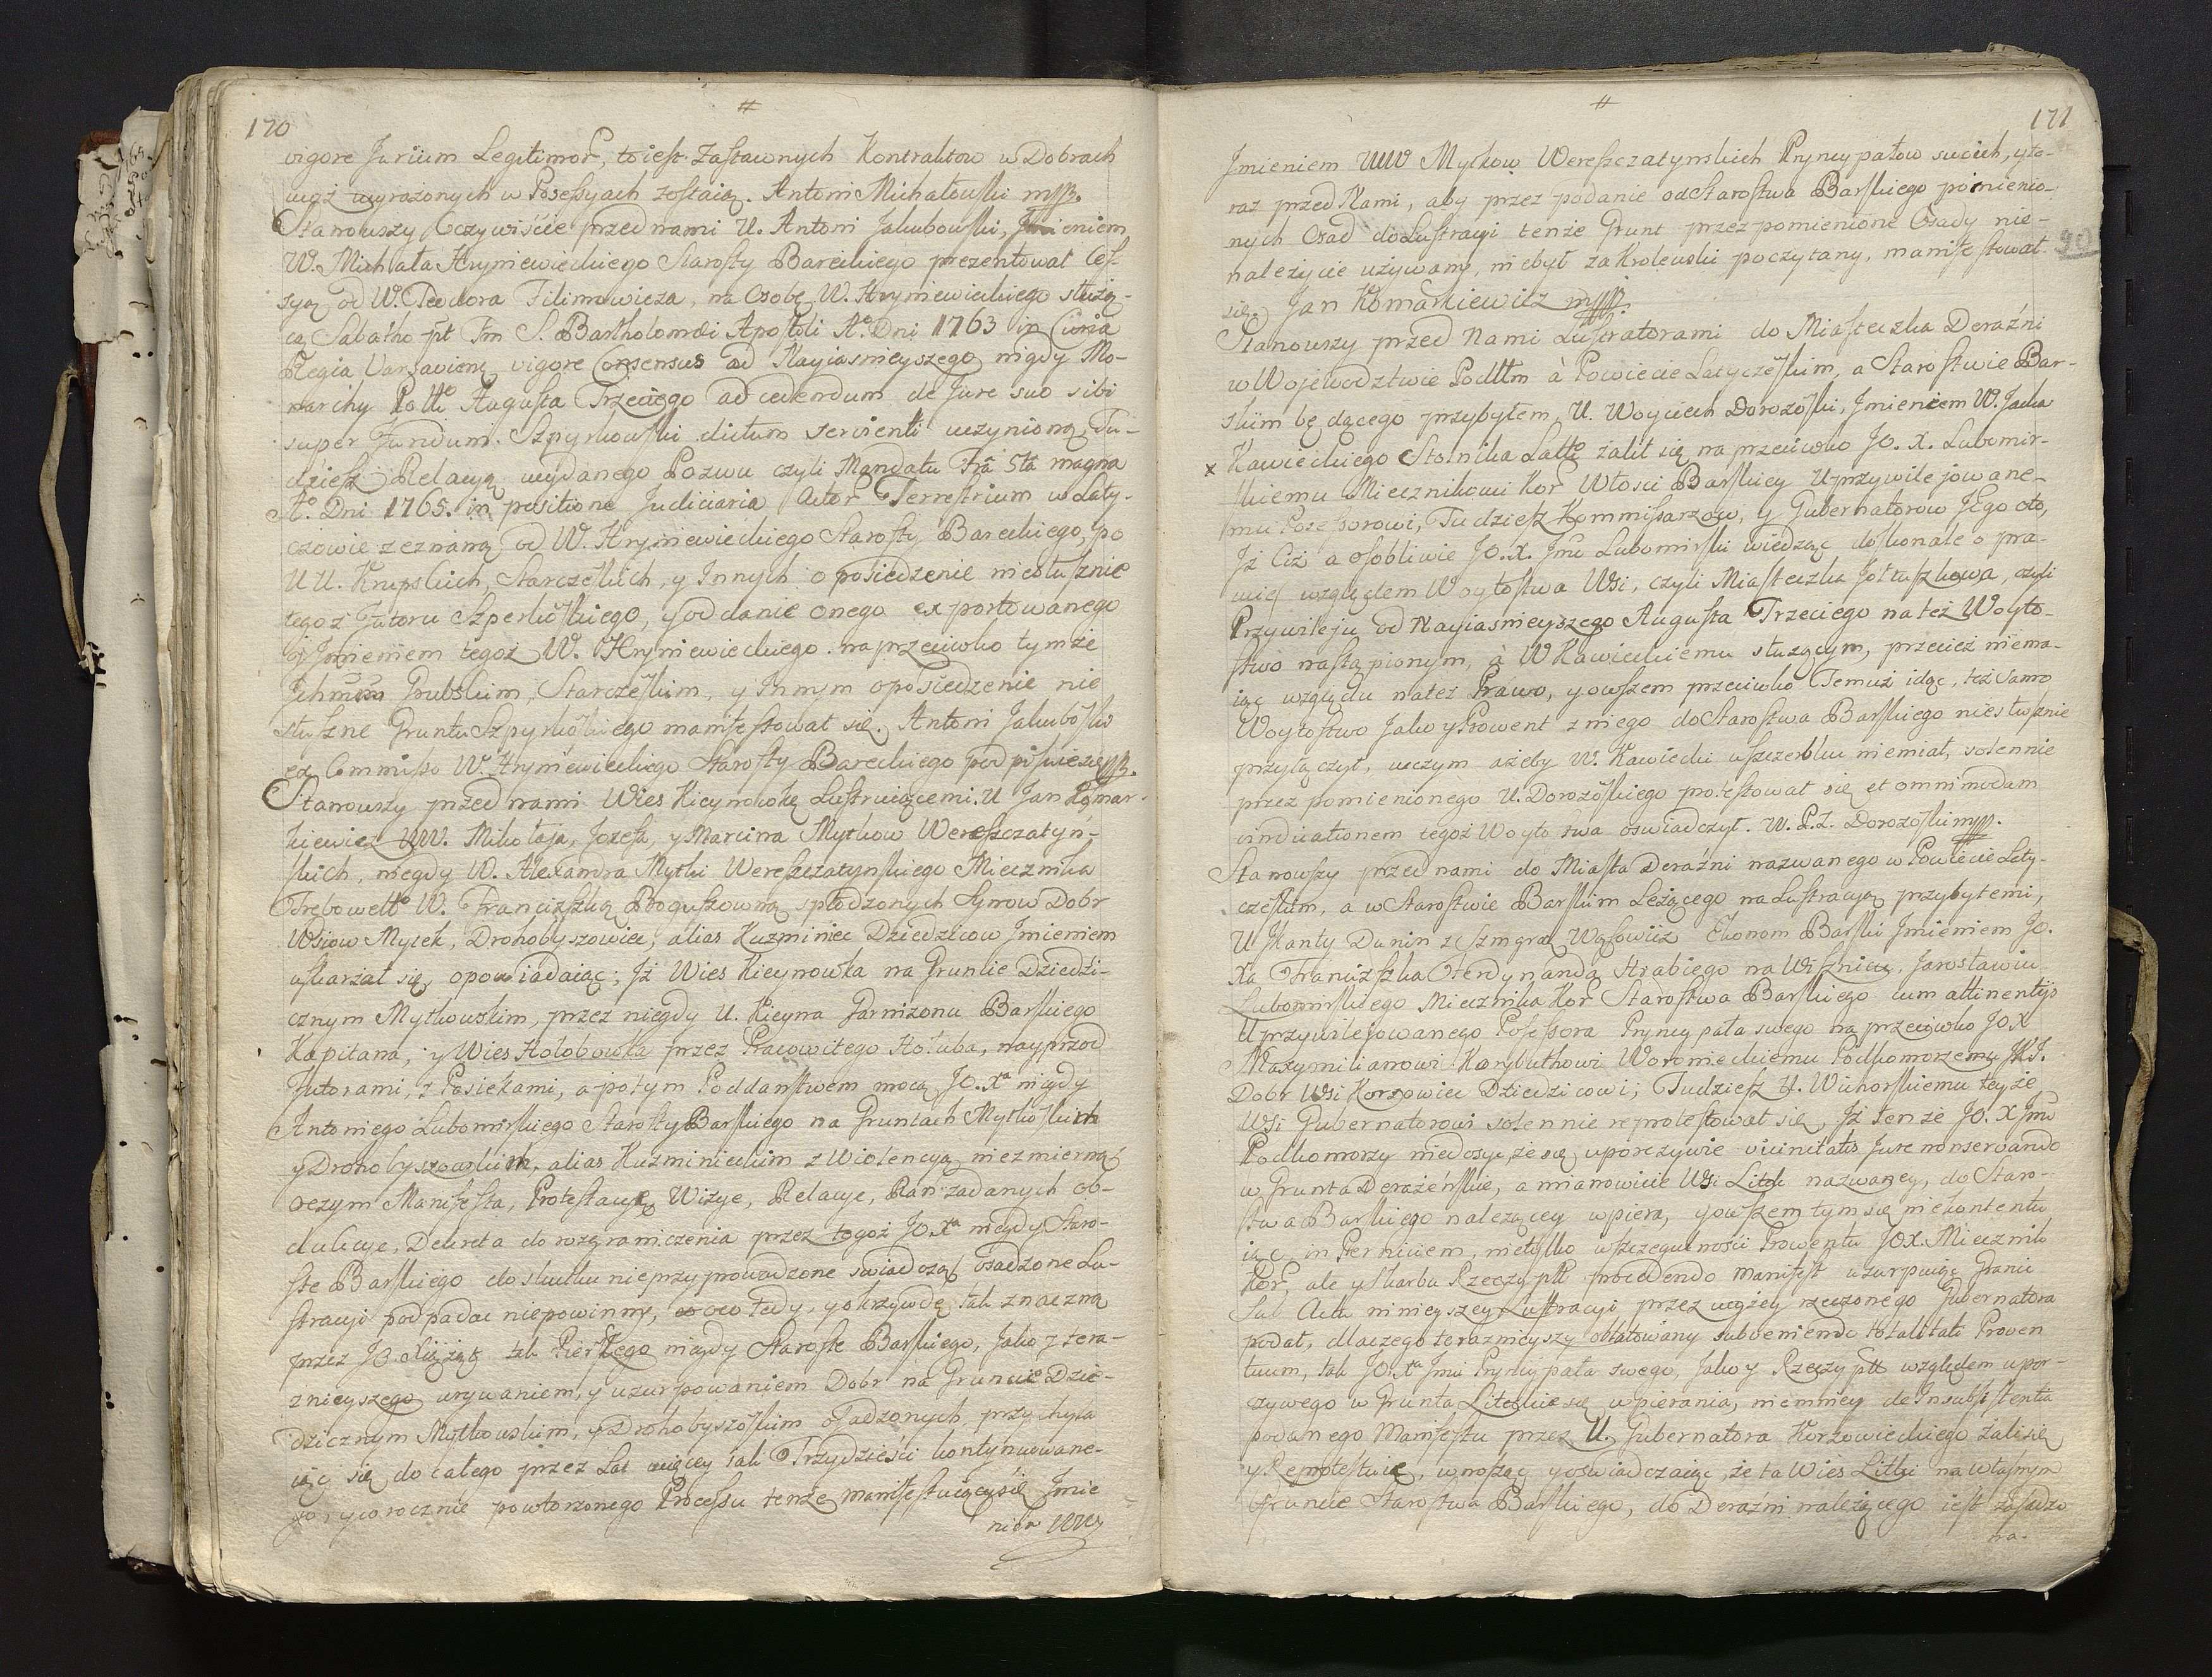 170
#
vigore Jurium Legitimor, to iest Zastawnych Kontraktow w Dobrach
wyż wyrażonych w Posessyach zostaią. Antoni Michałowski mpp.
Stanowszy Oczywiście przed nami U. Antoni Jakubowski, Jmieniem
W. Michała Hryniewieckiego Starosty Bareckiego prezentował Ces-
syą od W. Teodora Filimowicza, na Osobę W. Hryniewieckiego służą-
cą Sabatho pt Fm S. Bartholomæi Apostoli Ao. Dni 1763 in Curia
Regia Varsavien vigore Consensus od Nayiasnieyszego nigdy Mo-
narchy Polło Augusta Trzeciego ad cedendum de Jure suo sibi
super Fundum Szpyrkowski dictum servienti uczynioną, Tu-
dziesz Relacyą wydanego Pozwu czyli Mandatu Fra 5ta magna
Ao. Dni 1765. in positione Judiciaria Actor Terrestrium w Laty-
czowie zeznaną od W. Hryniewieckiego Starosty Bareckiego, po
U U. Krupskich, Starczewskich, y Innych o posiedzenie niesłusznie
tegoż Futoru Szperkowskiego, y oddanie onego exportowanego
y Jmieniem tegoż W. Hryniewieckiego naprzeciwko tymże
Ichmm Grubskim, Starczewskim, y Innym oposiedzenie nie
słuszne Gruntu Szpyrkowskiego manifestował się. Antoni Jakubowski
ex Commisso W. Hryniewieckiego Starosty Bareckiego podpisuie się mpp.
Stanowszy przed nami Wies Kicynowkę Lustruiącemi U Jan Komar-
kiewicz UW. Mikołaja, Jozefa, y Marcina Mytkow Wereszczatyn-
skich, niegdy W. Alexandra Mytki Wereszczatynskiego Miecznika
Trębowello W. Franciszką Boguszowną spłodzonych Synow Dobr
Wsiow Mytek, Drohobyszowiec, alias Kuzminiec Dziedzicow Jmieniem
uskarżał się, opowiadaiąc; Jż Wies Kicynowka na Gruncie Dziedzi-
cznym Mytkowskim, przez niegdy U. Kicyna Garnizonu Barskiego
Kapitana, y Wies Hołobowka przez Pracowitego Hołuba, nayprzod
Futorami, z Pasiekami, a potym Poddaństwem mocą JO. Xa nigdy
Antoniego Lubomirskiego Starosty Barskiego na Gruntach Mytkowskich
y Drohobyszowskich, alias Kuzminieckim z Wiolencyą niezmierną
oczym Manifesta, Protestacye, Wizye, Relacye, Ran zadanych ob-
dukcye, Dekreta do rozgraniczenia przez tegoż JO. Xa niegdy Staro-
ste Barskiego do skutku nieprzyprowadzone swiadczą osadzone Lu-
stracyi podpadac niepowinny, oco tedy, y okrzywdę tak znaczną
przez JO. Xiążąt tak Pierszego nigdy Staroste Barskiego, jako y tera-
znieyszego urywaniem, y uzurpowaniem Dobr na Gruncie Dzie-
dzicznym Mytkowskim, y Drohobyszowskim osadzonych przychyla
iąc się do całego przez Lat więcey jak Trzydzieści kontynuowane-
go y corocznie powtorzonego Processu tenże manifestuiącysię Jmie
niem UW
#
171
Jmieniem UUW Mytkow Wereszczatynskich Pryncypałow swoich, y te-
raz przed Nami, aby przez podanie od Starostwa Barskiego pomienio-
nych Osad do Lustracyi tenże Grunt przez pomienione Osady nie-
należycie używany, niebył za Krolewski poczytany, manifestował
się. Jan Komarkiewicz mpp.
90
Stanowszy przed Nami Lustratorami do Miasteczka Deraźni
w Wojewodztwie Podllm à Powiecie Latyczewskim, a Starostwie Bar-
skim będącego przybyłem, U. Woyciech Dorozowski, Jmieniem W. Jacka
x Kawieckiego Stolnika Latto żalił się naprzeciwko JO. X. Lubomir-
skiemu Miecznikowi Kor Włosci Barskiey Uprzywilejowane-
mu Posessorowi, Tudziesz Kommissarzow, y Gubernatorow JEgo oto,
Jż Ciż a osobliwie JO. X. Jmc Lubomirski wiedząc doskonale o pra-
wie względem Woytostwa Wsi, czyli Miasteczka Jołtuszkowa, czyli
Przywileju od Nayiasnieyszego Augusta Trzeciego na też Woyto-
stwo nastąpionym, à W Kawieckiemu służącym, przecież niema-
iąc względu nateż Prawo, y owszem przeciwko Temuż idąc, też samo
Woytostwo Jako y Prowent z niego do Starostwa Barskiego niesłusznie
przyłączył, wczym ażeby W. Kawiecki uszczerbku niemiał, solennie
przez pomienionego U. Dorozowskiego protestował się et omnimodam
vindicationem tegoż Woytostwa oswiadczył. W. P.Z. Dorozowski mpp.
Stanowszy przed nami do Miasta Deraźni nazwanego w Powiecie Laty-
czewskim, a w Starostwie Barskim Leżącego na Lustracyą przybyłemi,
U Kanty Dunin z Szmgral Wąsowicz Ekonom Barski Jmieniem JO.
Xa Franciszka Ferdynanda Hrabiego na Wisznicu, Jarosławiu
Lubomirskiego Miecznika Kor Starostwa Barskiego cum attinentijs
Uprzywilejowanego Possessora Pryncypała swego naprzeciwko JO X
Maxymilianowi Korybuthowi Woronieckiemu Podkomorzemu JKJ.
Dobr Wsi Korzowiec Dziedzicowi, Tudziesz U. Wichorskiemu teyże
Wsi Gubernatorowi solennie reprotestował się, Jż tenże JO. X Jmc
Podkomorzy niedosyć, że się uporczywie vicinitatis Jure non servando
w Grunta Derażeńskie, a mianowicie Wsi Litek nazwaney, do Staro-
stwa Barskiego należącey wpiera, y owszem tym się niekontentu
iąc, in Perniciem, nietylko wszczegulnosci Prowentu JOX. Mieczniko
Kor, ale y Skarbu Rzeczyptt procedendo Manifest uzurpuiąc Granic
Sub Actu ninieyszey Lustracyi, przez wyżey rzeczonego Gubernatora
podał, dlaczego teraznieyszy oblatowany subveniendo totalitati Proven
tuum, tak JO. Xa Jmci Pryncypała swego, Jako y Rzeczyptt względem upor-
czywego w Grunta Liteckie się wpierania, niemniey de Insubsistentia
podanego Manifestu przez U. Gubernatora Korzowieckiego żali się
y Reprotestuie, wnosząc y oswiadczaiąc, że ta Wies Litki na własnym
Gruncie Starostwa Barskiego, do Deraźni należącego iest zasadzo
na.